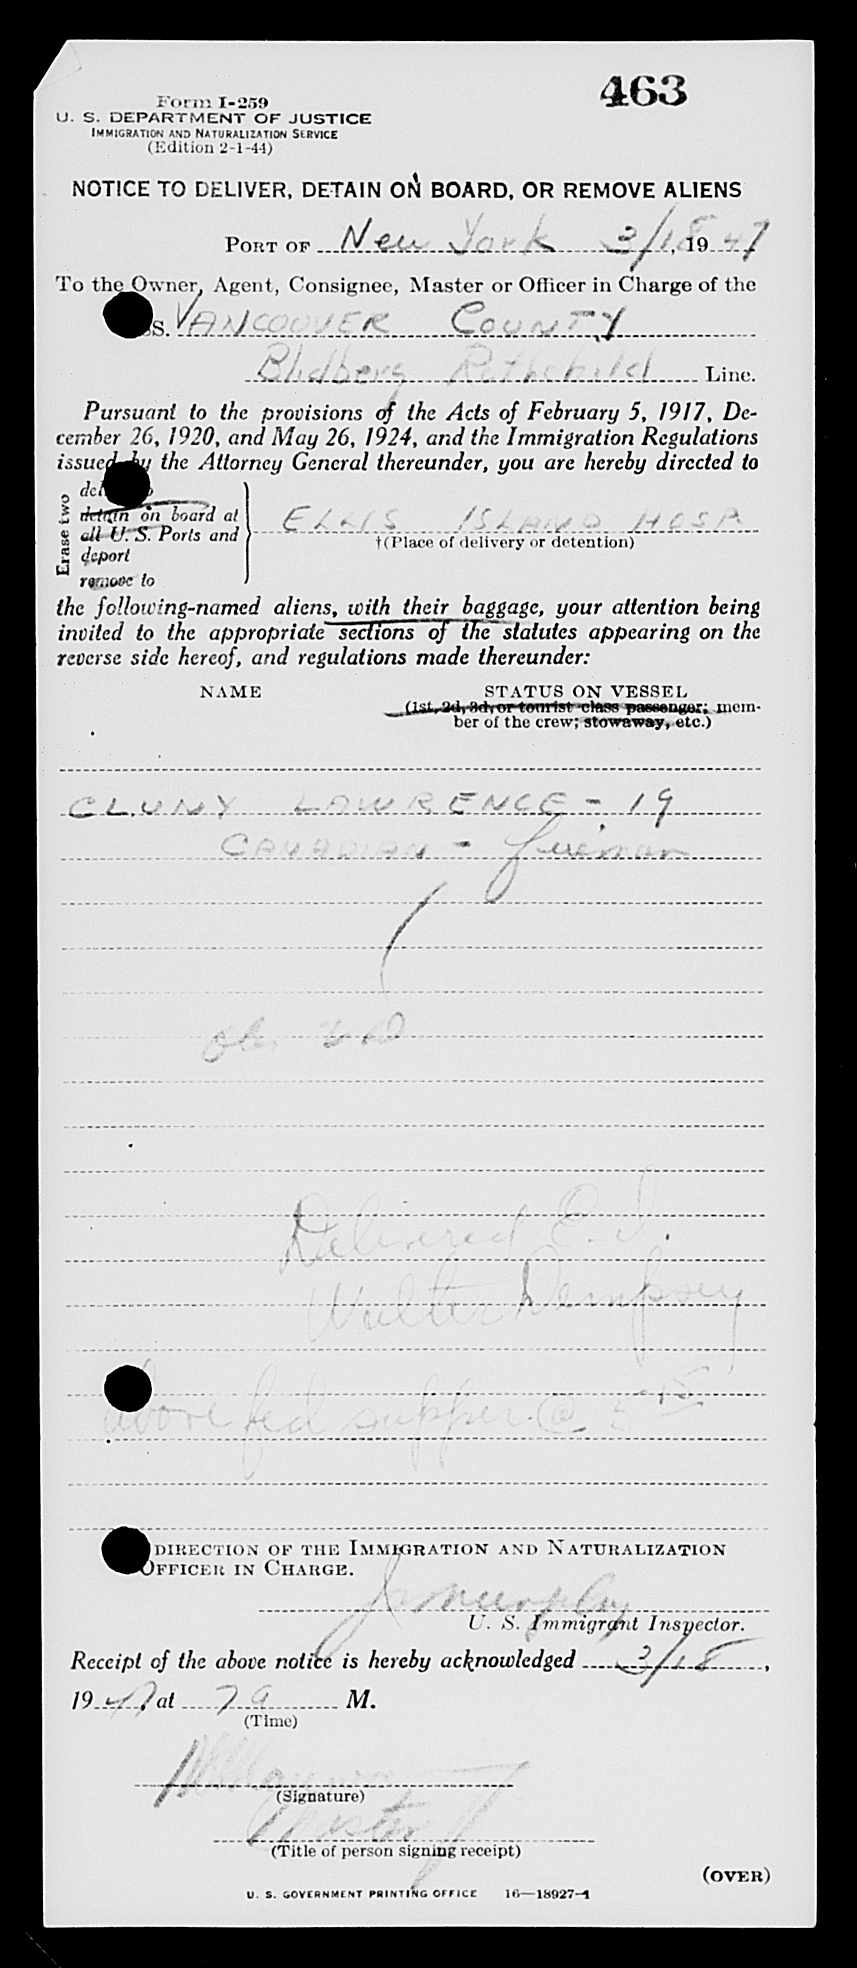 463
Form I-259
U. S. DEPARTMENT OF JUSTICE
IMMIGRATION AND NATURALIZATION SERVICE
(Edition 2-1-44)
NOTICE TO DELIVER, DETAIN ON BOARD, OR REMOVE ALIENS
PORT OF New York 3/18, 1947
To the Owner, Agent, Consignee, Master or Officer in Charge of the
SS. VANCOUVER COUNTY
Blidberg Rothchild Line.
Pursuant to the provisions of the Acts of February 5, 1917, De-
cember 26, 1920, and May 26, 1924, and the Immigration Regulations
issued by the Attorney General thereunder, you are hereby directed to
Erase two
detain on board at
all U. S. Ports and
deport
remove to
ELLIS ISLAND HOSP.
†(Place of delivery or detention)
the following-named aliens, with their baggage, your attention being
invited to the appropriate sections of the statutes appearing on the
reverse side hereof, and regulations made thereunder:
NAME STATUS ON VESSEL
(1st, 2d, 3d, or tourist class passenger; mem-
ber of the crew; stowaway, etc.)
CLUNY LAWRENCE - 19
CANADIAN - fireman
Delivered E. I.
Walter Dempsey
Above fed supper @ 5 15
DIRECTION OF THE IMMIGRATION AND NATURALIZATION
OFFICER IN CHARGE.
Murphy
U. S. Immigrant Inspector.
Receipt of the above notice is hereby acknowledged 3/18,
1947, at M.
(Time)
(Signature)
Master
(Title of person signing receipt)
(OVER)
U. S. GOVERNMENT PRINTING OFFICE 16—18927-1